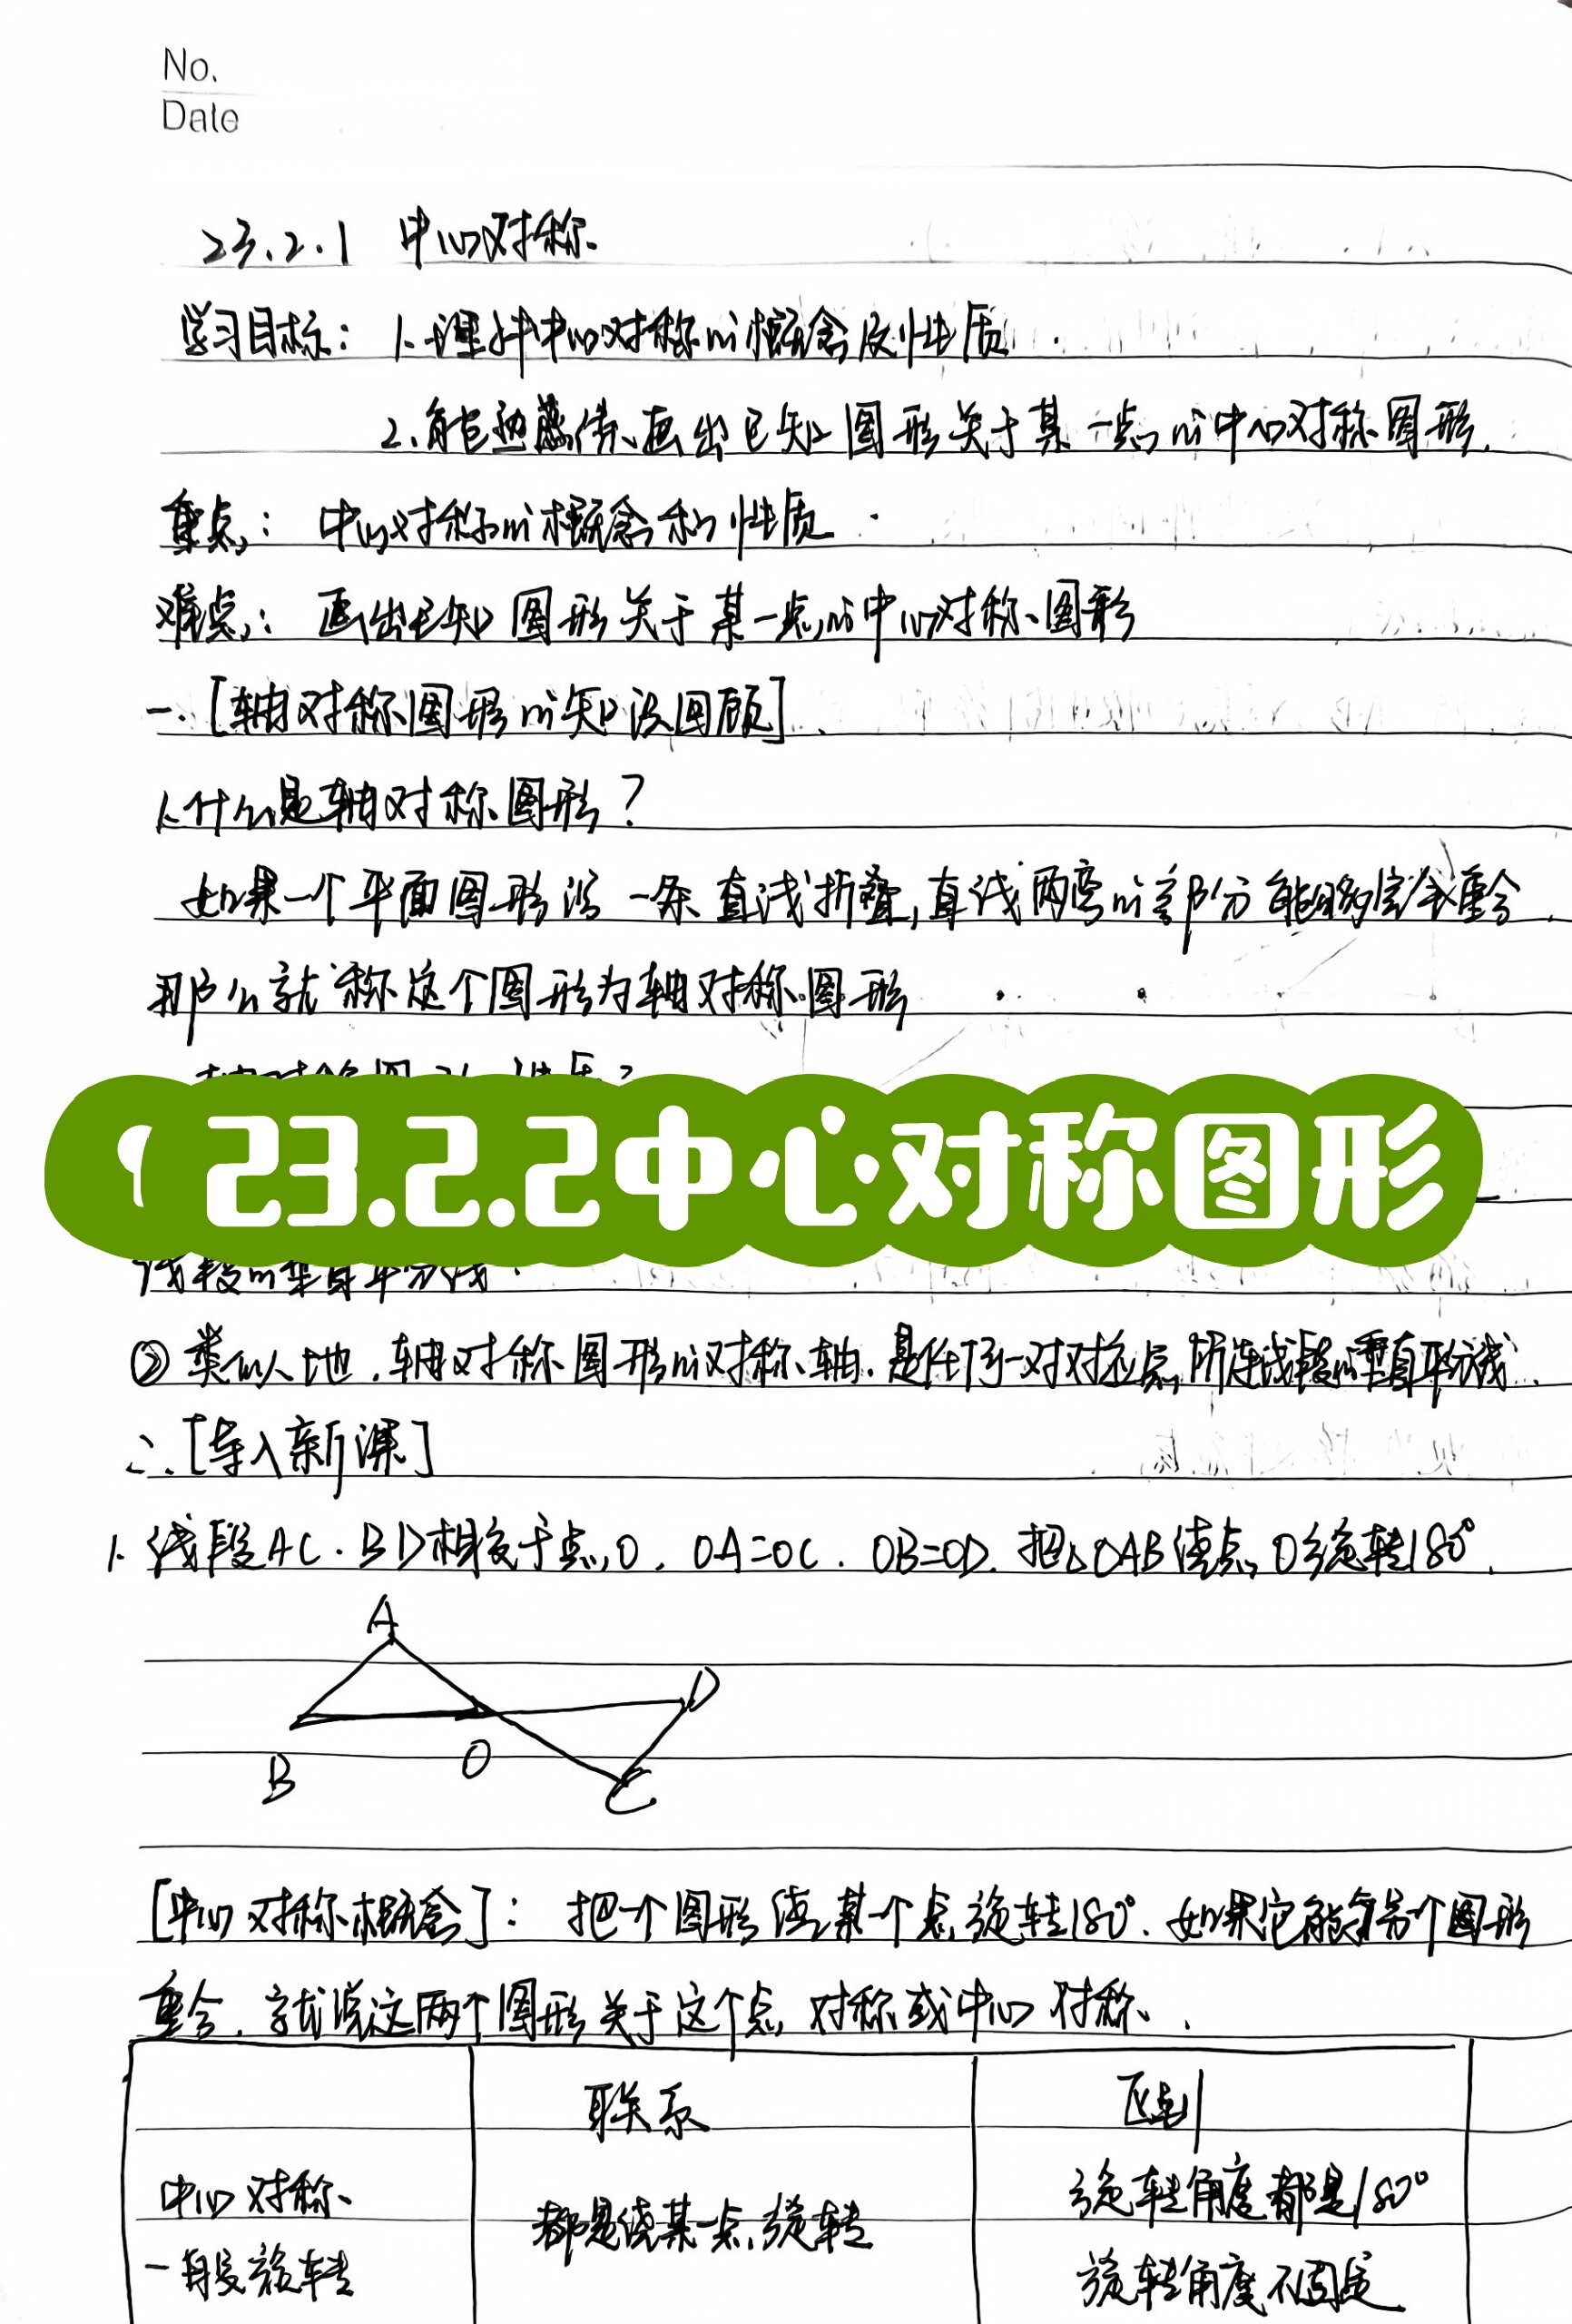 No.
Date
23.2.1 中心对称
学习目标：1.理解中心对称的概念及性质
2.能熟练画出已知图形关于某一点的中心对称图形.
重点：中心对称的概念和性质
难点：画出已知图形关于某一点的中心对称图形
一.[轴对称图形的知识回顾]
1.什么是轴对称图形？
如果一个平面图形沿一条直线折叠,直线两旁的部分能够完全重合
那么就称这个图形为轴对称图形
23.2.2中心对称图形
线段的垂直平分线.
②类似地.轴对称图形的对称轴.是任何一对对应点所连线段的垂直平分线.
二.[导入新课]
1.线段AC.BD相交于点O.OA=OC.OB=OD.把△OAB绕点O旋转180°.
A
D
B
O
C
[中心对称概念]：把一个图形绕某个点旋转180°.如果它能与另个图形
重合.就说这两个图形关于这个点对称或中心对称.
联系 区别
中心对称 都是绕某一点旋转 旋转角度都是180°
一般旋转 旋转角度不固定